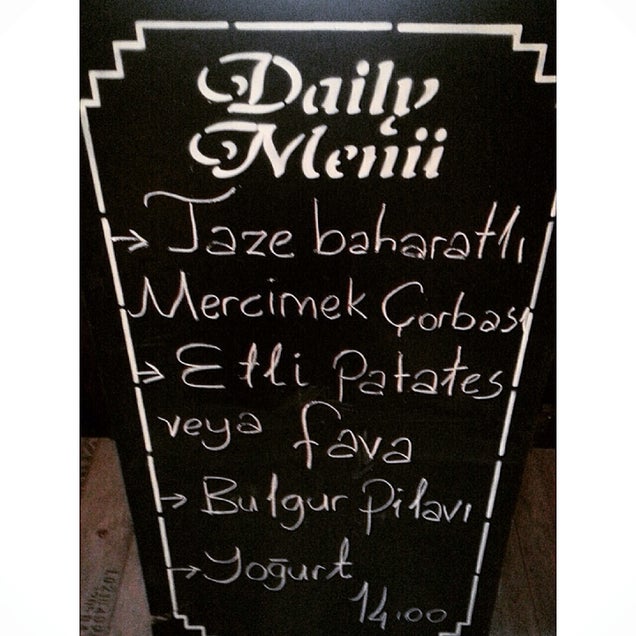 Daily
Menü
→ Taze baharatlı
Mercimek Çorbası
→ Etli patates
veya fava
→ Bulgur Pilavı
→ Yoğurt
14.00